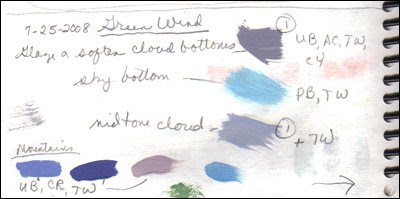 7-25-2008 Green Wind
Glaze a soften cloud bottoms
①
UB, AC, TW,
CY
sky bottom
PB, TW
midtone cloud
①
+ TW
Mountains
UB, CR, TW